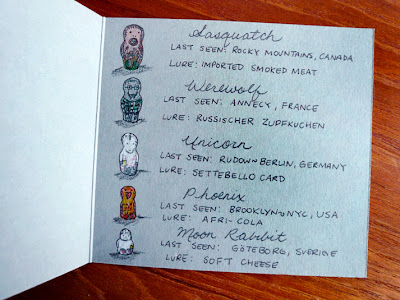 Sasquatch
LAST SEEN: ROCKY MOUNTAINS, CANADA
LURE: IMPORTED SMOKED MEAT
Werewolf
LAST SEEN: ANNECY, FRANCE
LURE: RUSSISCHER ZUPFKUCHEN
Unicorn
LAST SEEN: RUDOW~BERLIN, GERMANY
LURE: SETTEBELLO CARD
Phoenix
LAST SEEN: BROOKLYN~NYC, USA
LURE: AFRI-COLA
Moon Rabbit
LAST SEEN: GÖTEBORG, SVERIGE
LURE: SOFT CHEESE